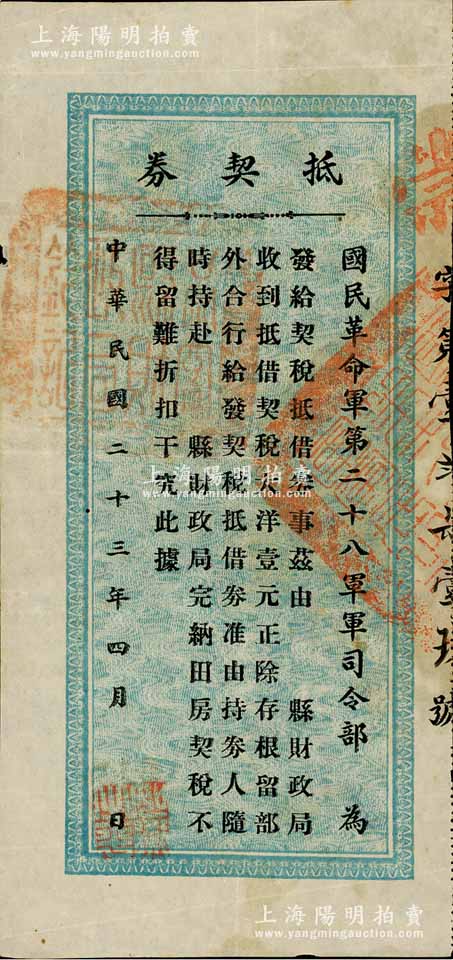 上海陽明拍賣
www.yangmingauction.com
抵契券
國民革命軍第二十八軍軍司令部 為
發給契稅抵借券事茲由 縣財政局
收到抵借契稅大洋壹元正除存根留部
外合行給發契稅抵借券准由持券人隨
時持赴 縣財政局完納田房契稅不
得留難折扣干究此據
中華民國二十三年四月 日
字第壹
壹
號
上海陽明拍賣
www.yangmingauction.com
上海陽明拍賣
www.yangmingauction.com